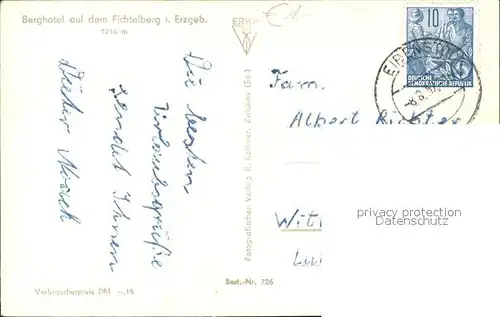 Berghotel auf dem Fichtelberg i. Erzgeb.
1214 m
Die besten
Urlaubsgrüße
sendet Ihnen
Dieter Noack
Verbraucherpreis DM —,15
Fotografischer Verlag R. Kallmer, Zwickau (Sa.)
Best.-Nr. 726
10
DEUTSCHE
DEMOKRATISCHE REPUBLIK
Fam.
Albert Richter
privacy protection
Datenschutz